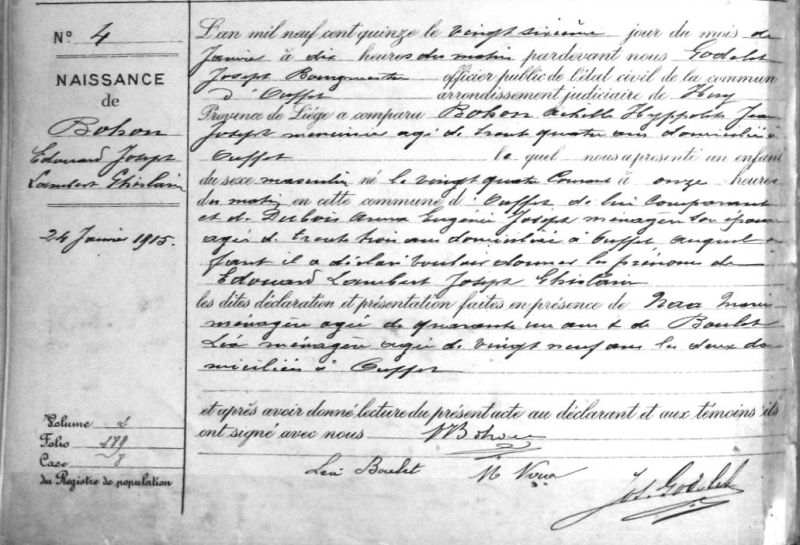 N° 4
NAISSANCE
de
Bohon
Edouard Joseph
Lambert Ghislain
24 Janvier 1915.
Volume 2
Folio 189
Case 8
du Registre de population
L'an mil neuf cent quinze le vingt sixième jour du mois de
Janvier à dix heures du matin pardevant nous Godelet
Joseph Bourgmestre officier public de l'état civil de la commun
d'Ouffet arrondissement judiciaire de Huy
Province de Liége a comparu Bohon Achille Hyppolite Jean
Joseph menuisier agé de trente quatre ans domicilié à
Ouffet le quel nous a présenté un enfant
du sexe masculin né le vingt quatre Courant à onze heures
du matin en cette commune d'Ouffet de lui Comparant
et de Dubois Eugénie Joseph ménagère son épouse
agée de trente trois ans domiciliée à Ouffet auquel en
fant il a déclaré vouloir donner les prénoms de
Edouard Lambert Joseph Ghislain
les dites déclaration et présentation faites en présence de
ménagère agée de quarante un ans & de Boulet
Léa ménagère agée de vingt neuf ans les deux do
miciliées à Ouffet
et après avoir donné lecture du présent acte au déclarant et aux témoins ils
ont signé avec nous Bohon
Léa Boulet M
Jos. Godelet